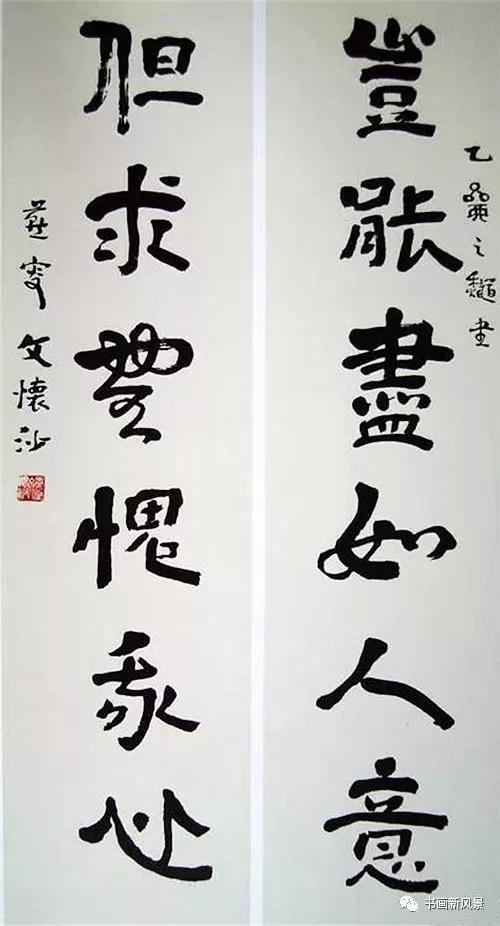 乙之龝書
豈能盡如人意
但求無愧我心
燕叟文懷沙
书画新风景